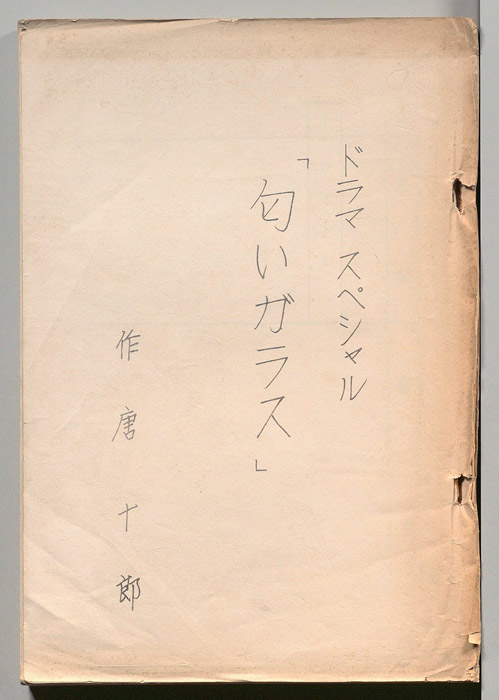 ドラマ スペシャル
「匂いガラス」
作 唐 十 郎